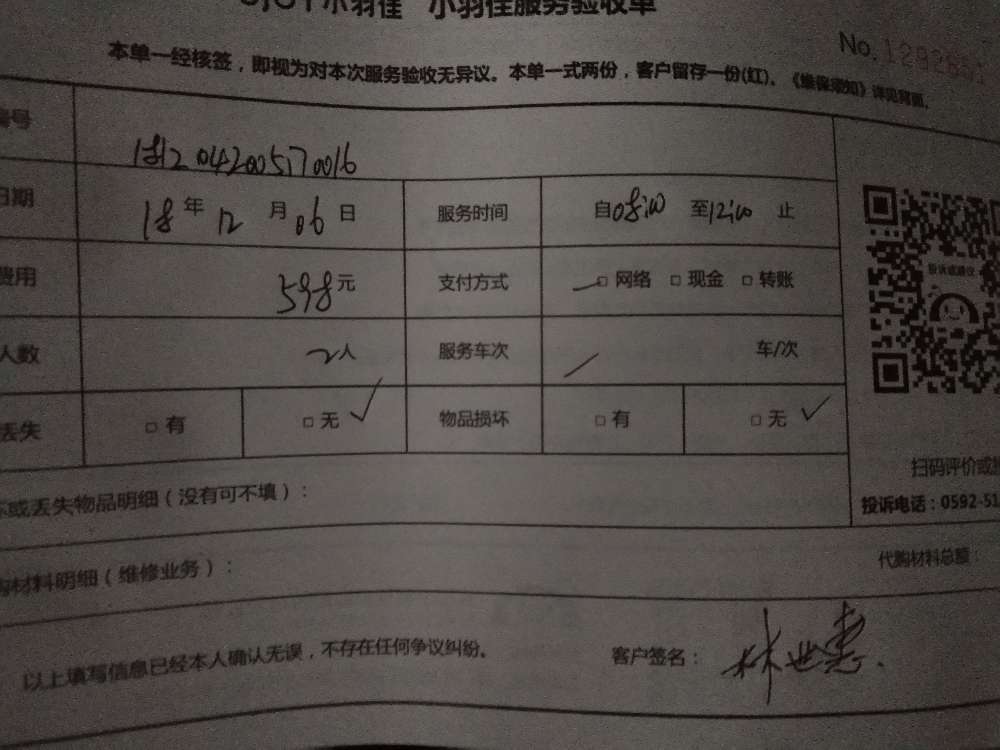 小羽佳 小羽佳服务验收单
No.
本单一经核签，即视为对本次服务验收无异议。本单一式两份，客户留存一份(红)。《维保须知》详见背面。
编号 1812042005170016
日期 18 年 12 月 06 日 服务时间 自08:00 至12:00 止
费用 598元 支付方式 □ 网络 □ 现金 □ 转账
人数 2人 服务车次 / 车/次
丢失 □ 有 □ 无 ✓ 物品损坏 □ 有 □ 无 ✓
投诉或建议
扫码评价或
投诉电话：0592-51
坏或丢失物品明细（没有可不填）：
购材料明细（维修业务）： 代购材料总额：
以上填写信息已经本人确认无误，不存在任何争议纠纷。 客户签名：林世惠